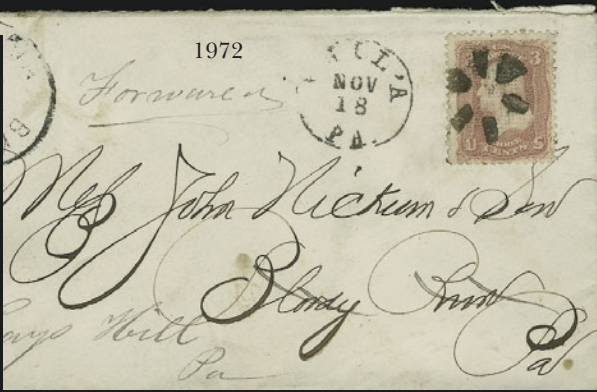 1972
Forwarded
L'A
NOV
18
PA.
3
U S
CENTS
John Nickum & Son
Bloody Run
Pa
Rays Hill
Pa